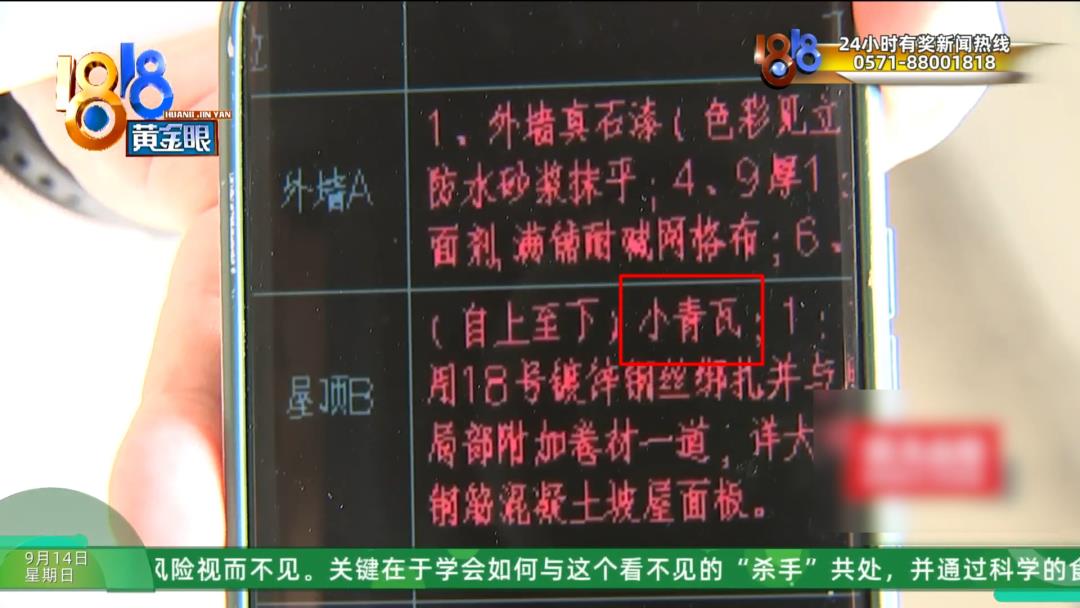 1818
HUANG JIN YAN
黄金眼
24小时有奖新闻热线
0571-88001818
外墙A
1、外墙真石漆(色彩见立
防水砂浆抹平;4、9厚1:
面剂,满铺耐碱网格布;6、
屋顶B
(自上至下)小青瓦;1:
用18号镀锌钢丝绑扎并与
局部附加卷材一道,详大
钢筋混凝土坡屋面板。
9月14日
星期日
风险视而不见。关键在于学会如何与这个看不见的“杀手”共处,并通过科学的食